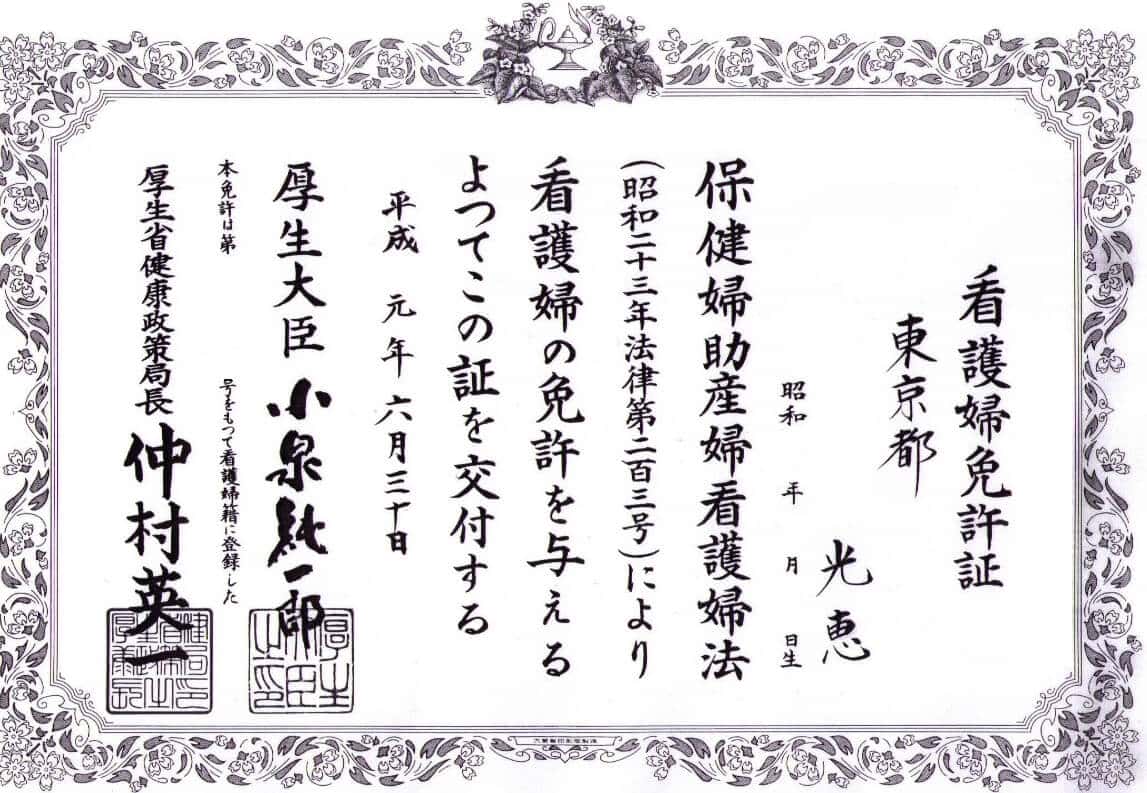 看護婦免許証
東京都
光恵
昭和 年 月 日生
保健婦助産婦看護婦法
(昭和二十三年法律第二百三号)により
看護婦の免許を与える
よつてこの証を交付する
平成 元年 六月三十日
厚生大臣 小泉純一郎
本免許は第 号をもつて看護婦籍に登録した
厚生省健康政策局長 仲村英一